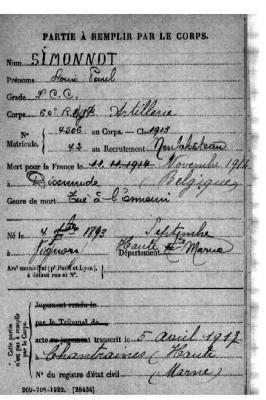 PARTIE À REMPLIR PAR LE CORPS.
Nom SIMONNOT
Prénoms Louis Paul
Grade 2e C. C.
Corps 60e R. Artillerie
N° Matricule. 4506 au Corps. — Cl. 1913
42 au Recrutement Neufchâteau
Mort pour la France le 11.11.1914 Novembre 1914
à Dixmude (Belgique)
Genre de mort Tué à l'ennemi
Né le 4 7bre 1893 Septembre
à Vignory Département Haute Marne
Arrt municipal (pr Paris et Lyon), à défaut rue et N°.
Cette partie n'est pas à remplir par le Corps.
Jugement rendu le
par le Tribunal de
acte ou jugement transcrit le 5 avril 1917
à Chantraines (Haute
N° du registre d'état civil Marne)
209-708-1922. [26434]